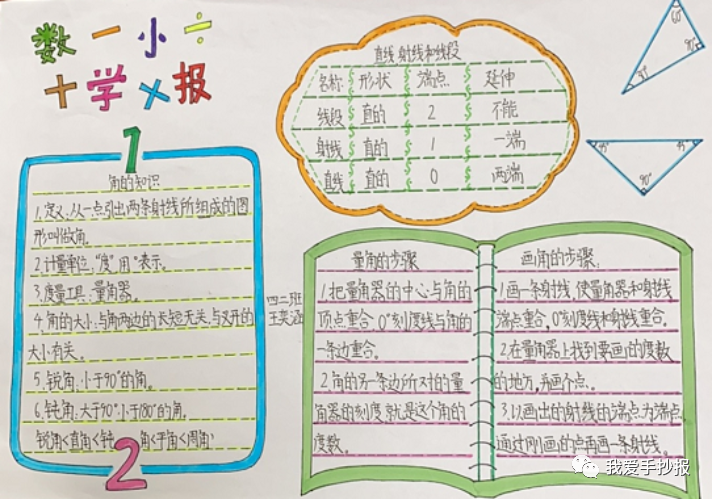 数 一 小 ÷
十 学 × 报
1
角的知识
1.定义:从一点引出两条射线所组成的图
形叫做角。
2.计量单位,"度"用°表示。
3.度量工具:量角器。
4.角的大小:与角两边的长短无关,与叉开的
大小有关。
5.锐角:小于90°的角。
6.钝角:大于90°小于180°的角。
锐角<直角<钝 角<平角<周角
2
四二班
王奕涵
直线、射线和线段
名称 形状 端点 延伸
线段 直的 2 不能
射线 直的 1 一端
直线 直的 0 两端
60°
90°
45° 45°
90°
量角的步骤
1.把量角器的中心与角的
顶点重合,0°刻度线与角的
一条边重合。
2.角的另一条边所对的量
角器的刻度就是这个角的
度数。
画角的步骤:
1.画一条射线,使量角器和射线
端点重合,0°刻度线和射线重合。
2.在量角器上找到要画的度数
的地方,再画个点。
3.以画出的射线的端点为端点,
通过刚画的点再画一条射线。
我爱手抄报